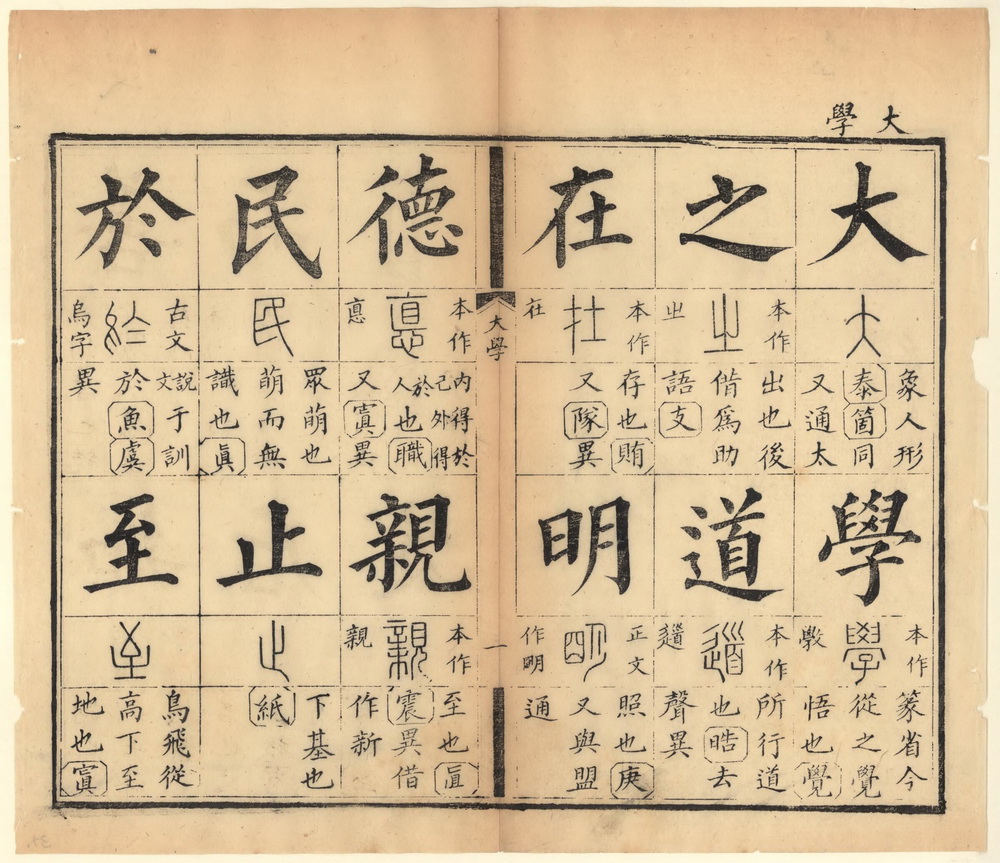 大學
大
大
象人形
泰箇同
又通太
學
本作
學
斆
篆省今
從之覺
悟也覺
之
本作
㞢
㞢
出也後
借爲助
語支
道
本作
道
所行道
也皓去
聲異
在
本作
在
在
存也賄
又隊異
明
正文
朙
作朙
照也庚
又與盟
通
大學
一
德
本作
悳
悳
內得於
己外得
於人也職
又寘異
親
本作
親
親
至也眞
震異借
作新
民
民
眾萌也
萌而無
識也眞
止
止
下基也
紙
於
古文
於
烏字
說文于訓
於魚虞
異
至
至
鳥飛從
高下至
地也寘